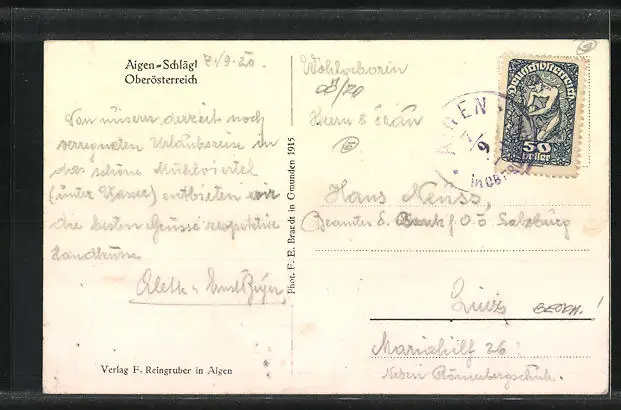 Aigen-Schlägl 7./9.20.
Oberösterreich
Von unserer derzeit noch
verregneten Urlaubsreise in
das schöne Mühlviertel
(unter Wasser) entbieten wir
die besten Grüsse respektive
Handküsse
Emil Beyer
Verlag F. Reingruber in Aigen
Phot. F. E. Brandt in Gmunden 1915
Wohlgeboren
Herrn &
Hans
Beamter d. Bank f. O.ö. Salzburg
Linz
Mariahilf 26
Neben Römerbergschule.
Deutschösterreich
50
Heller
AIGEN
7/9